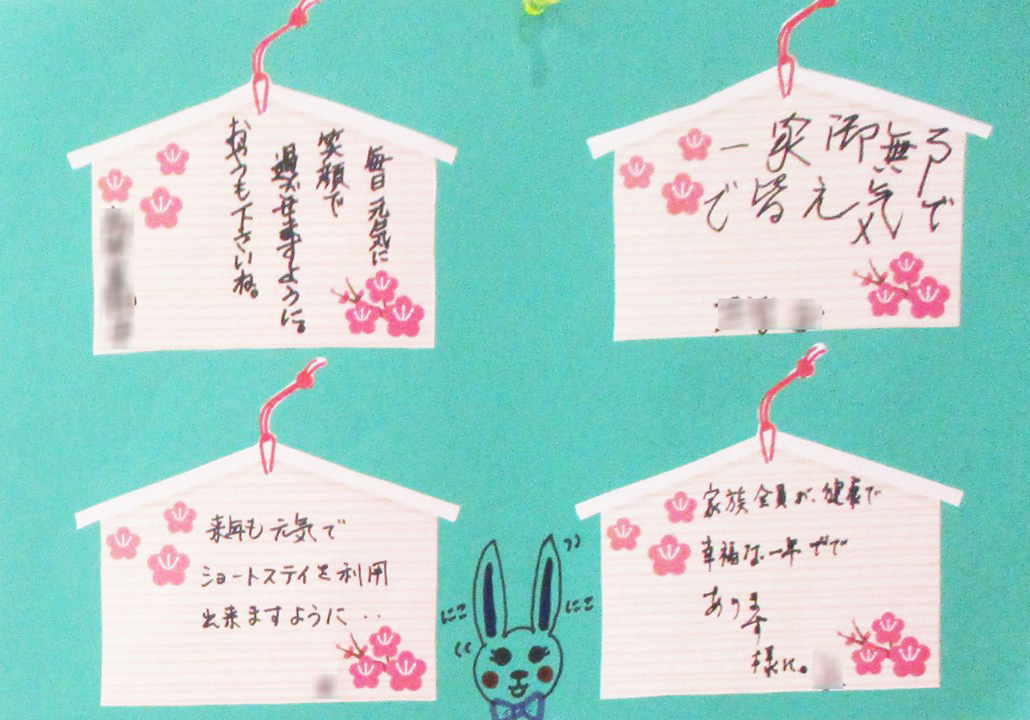 毎日元気に
笑顔で
過ごせますように。
おやつも下さいね。
一家御無
で皆え気
来年も元気で
ショートステイを利用
出来ますように・・
家族全員が、健康で
幸福な一年
あります
様に。
にこ
にこ